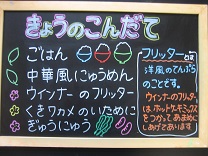 きょうのこんだて
ごはん
中華風にゅうめん
ウインナーのフリッター
くきワカメのいために
ぎゅうにゅう
フリッターとは
洋風のてんぷら
のことです。
ウィンナーのフリッターは、
ホットケーキミックスを
つかって、あまめに
しあげてあります!